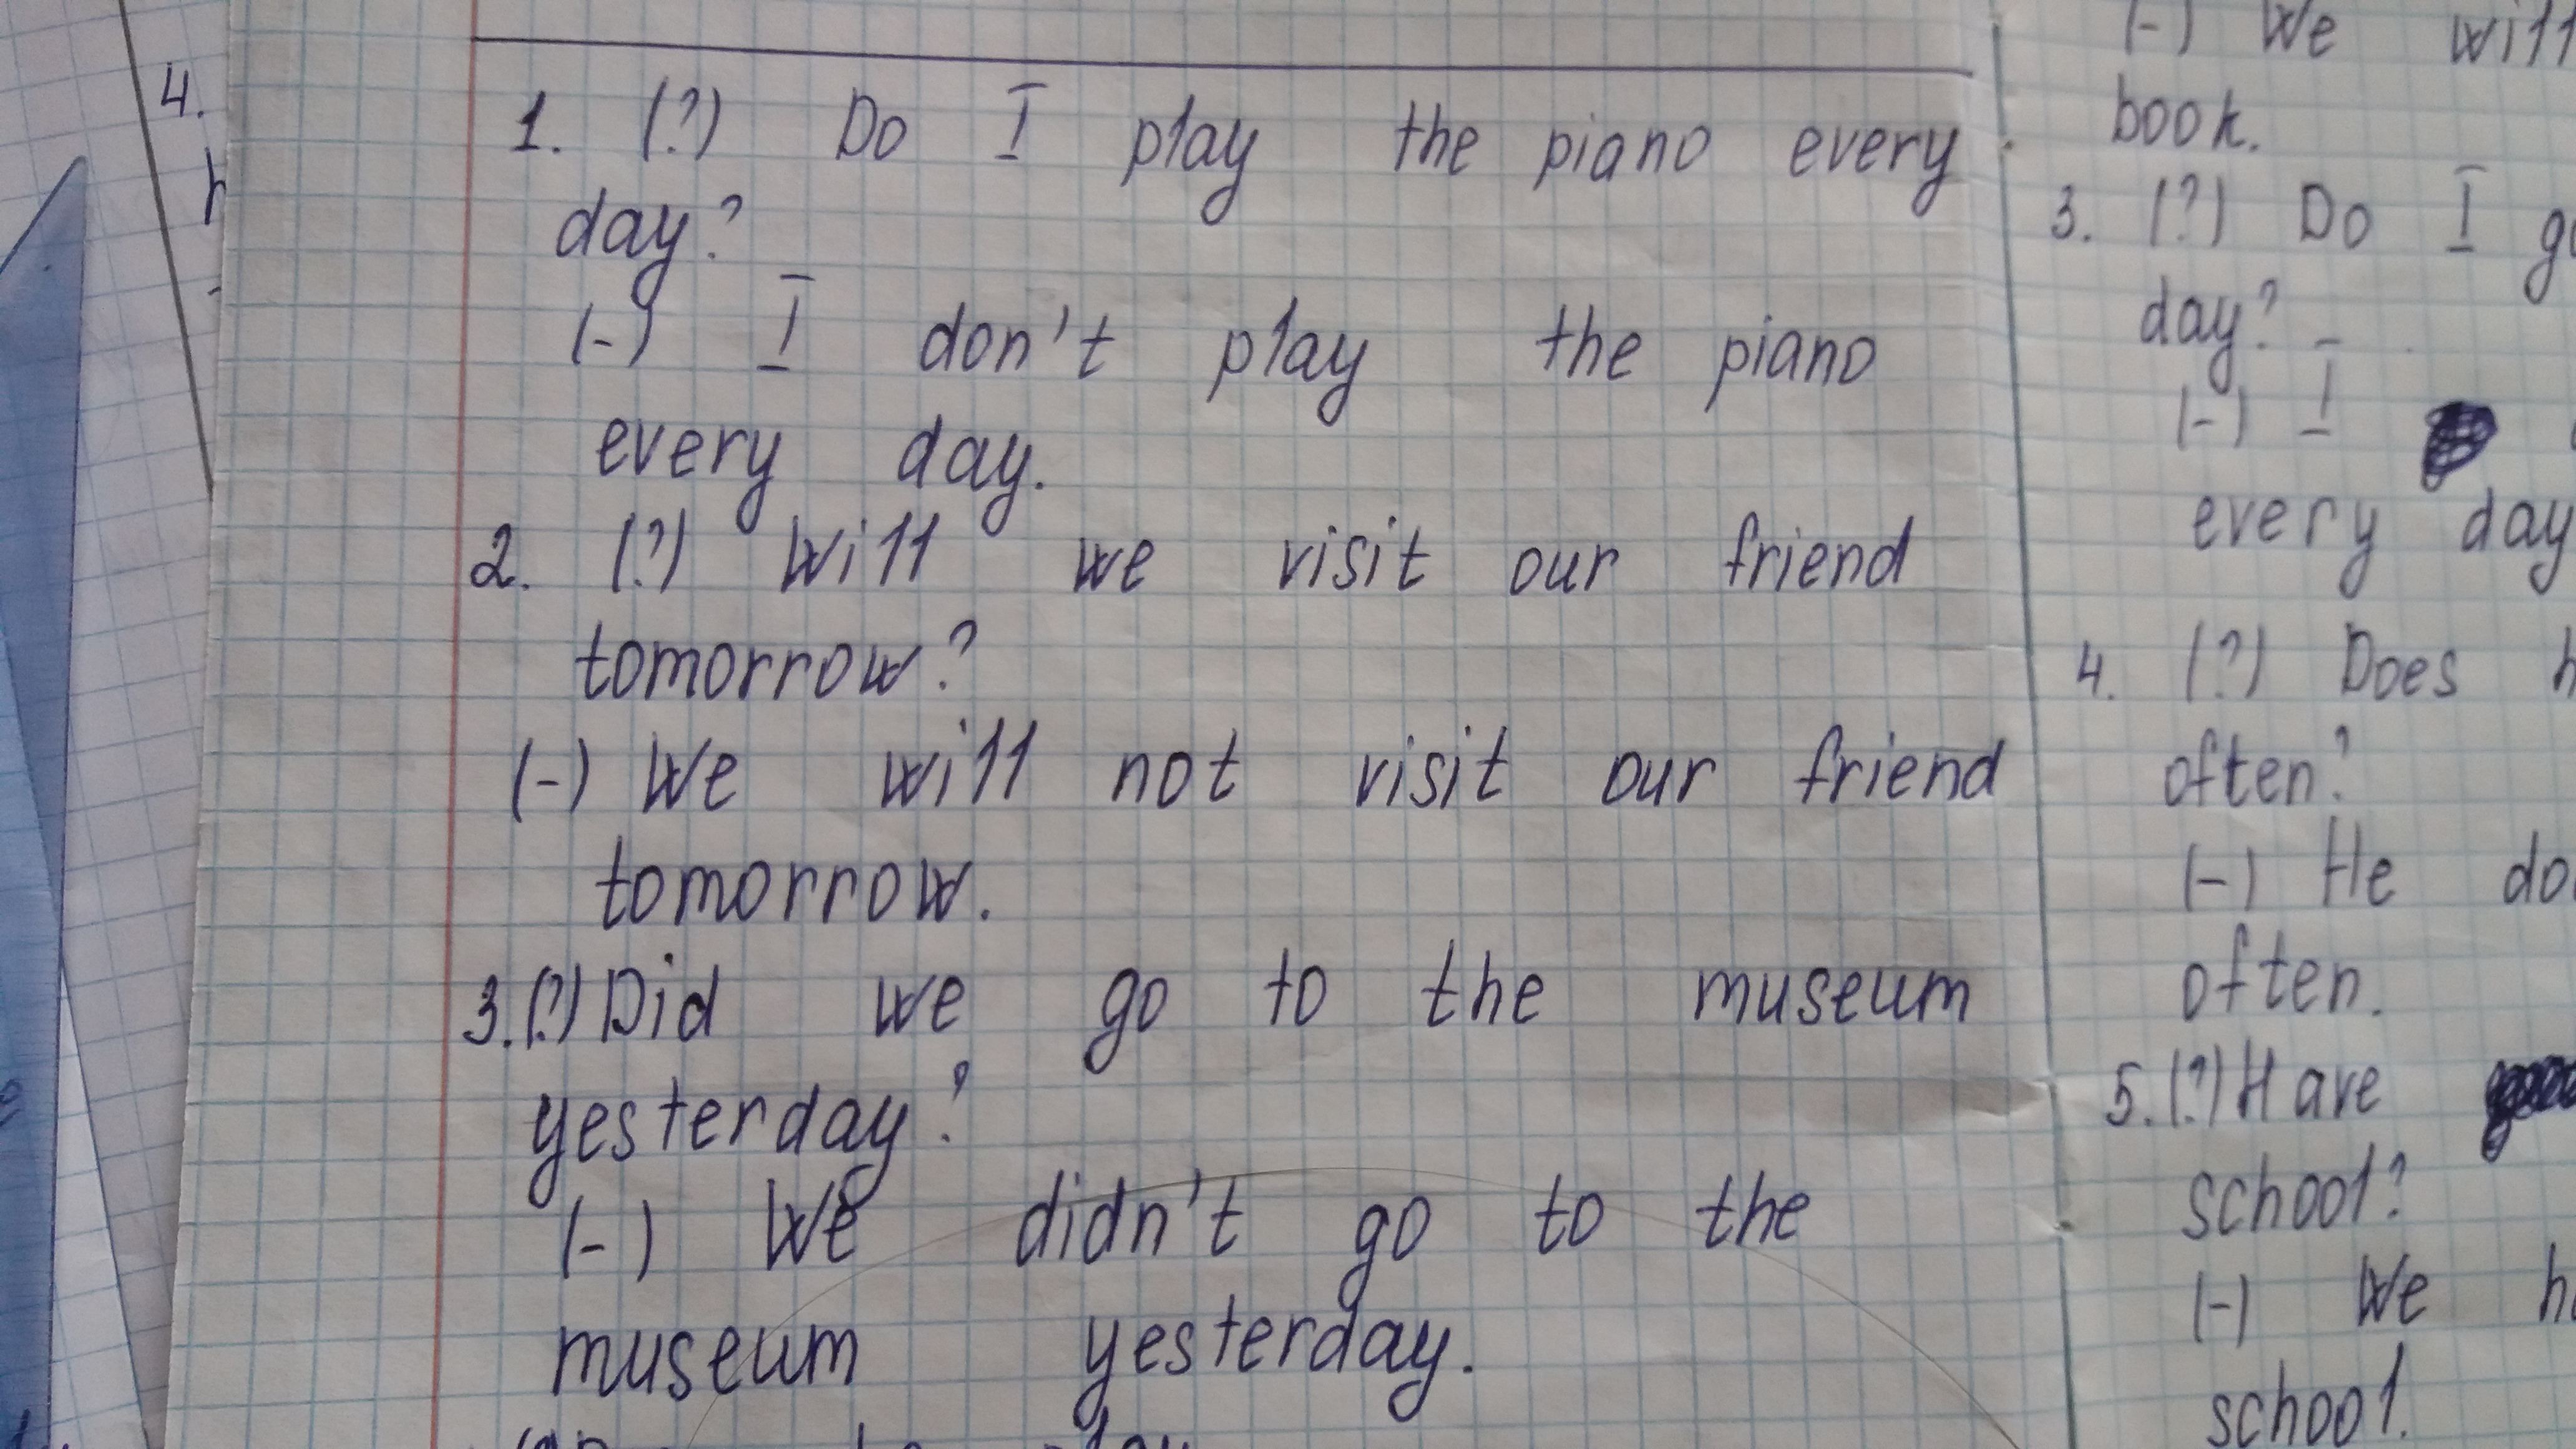 1. (?) Do I play the piano every
day?
(-) I don't play the piano
every day.
2. (?) Will we visit our friend
tomorrow?
(-) We will not visit our friend
tomorrow.
3. (?) Did we go to the museum
yesterday?
(-) We didn't go to the
museum yesterday.
(-) We will
book.
3. (?) Do I
day?
(-) I
every day
4. (?) Does
often?
(-) He
often.
5. (?) Have
school?
(-) We
school.
4.